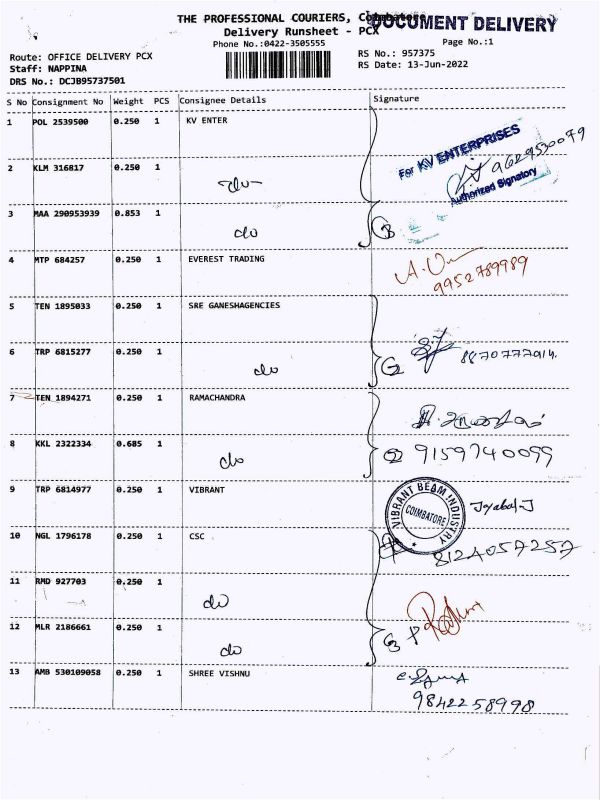 THE PROFESSIONAL COURIERS, Coimbatore
DOCUMENT DELIVERY
Delivery Runsheet - PCX
Phone No.:0422-3505555
Page No.:1
Route: OFFICE DELIVERY PCX
RS No.: 957375
Staff: NAPPINA
RS Date: 13-Jun-2022
DRS No.: DCJB95737501
S No Consignment No Weight PCS Consignee Details Signature
1 POL 2539500 0.250 1 KV ENTER
For KV ENTERPRISES
9629530079
Authorized Signatory
2 KLM 316817 0.250 1 do
3 MAA 290953939 0.853 1 do 3
4 MTP 684257 0.250 1 EVEREST TRADING
9952789989
5 TEN 1895033 0.250 1 SRE GANESHAGENCIES
6 TRP 6815277 0.250 1 do 2
8870777914
7 TEN 1894271 0.250 1 RAMACHANDRA
8 KKL 2322334 0.685 1 do 2 9159740099
9 TRP 6814977 0.250 1 VIBRANT
VIBRANT BEAM INDUSTRY
COIMBATORE
Jayabal-J
10 NGL 1796178 0.250 1 CSC
8124057257
11 RMD 927703 0.250 1 do
12 MLR 2186661 0.250 1 do 3
13 AMB 530109058 0.250 1 SHREE VISHNU
9842258998